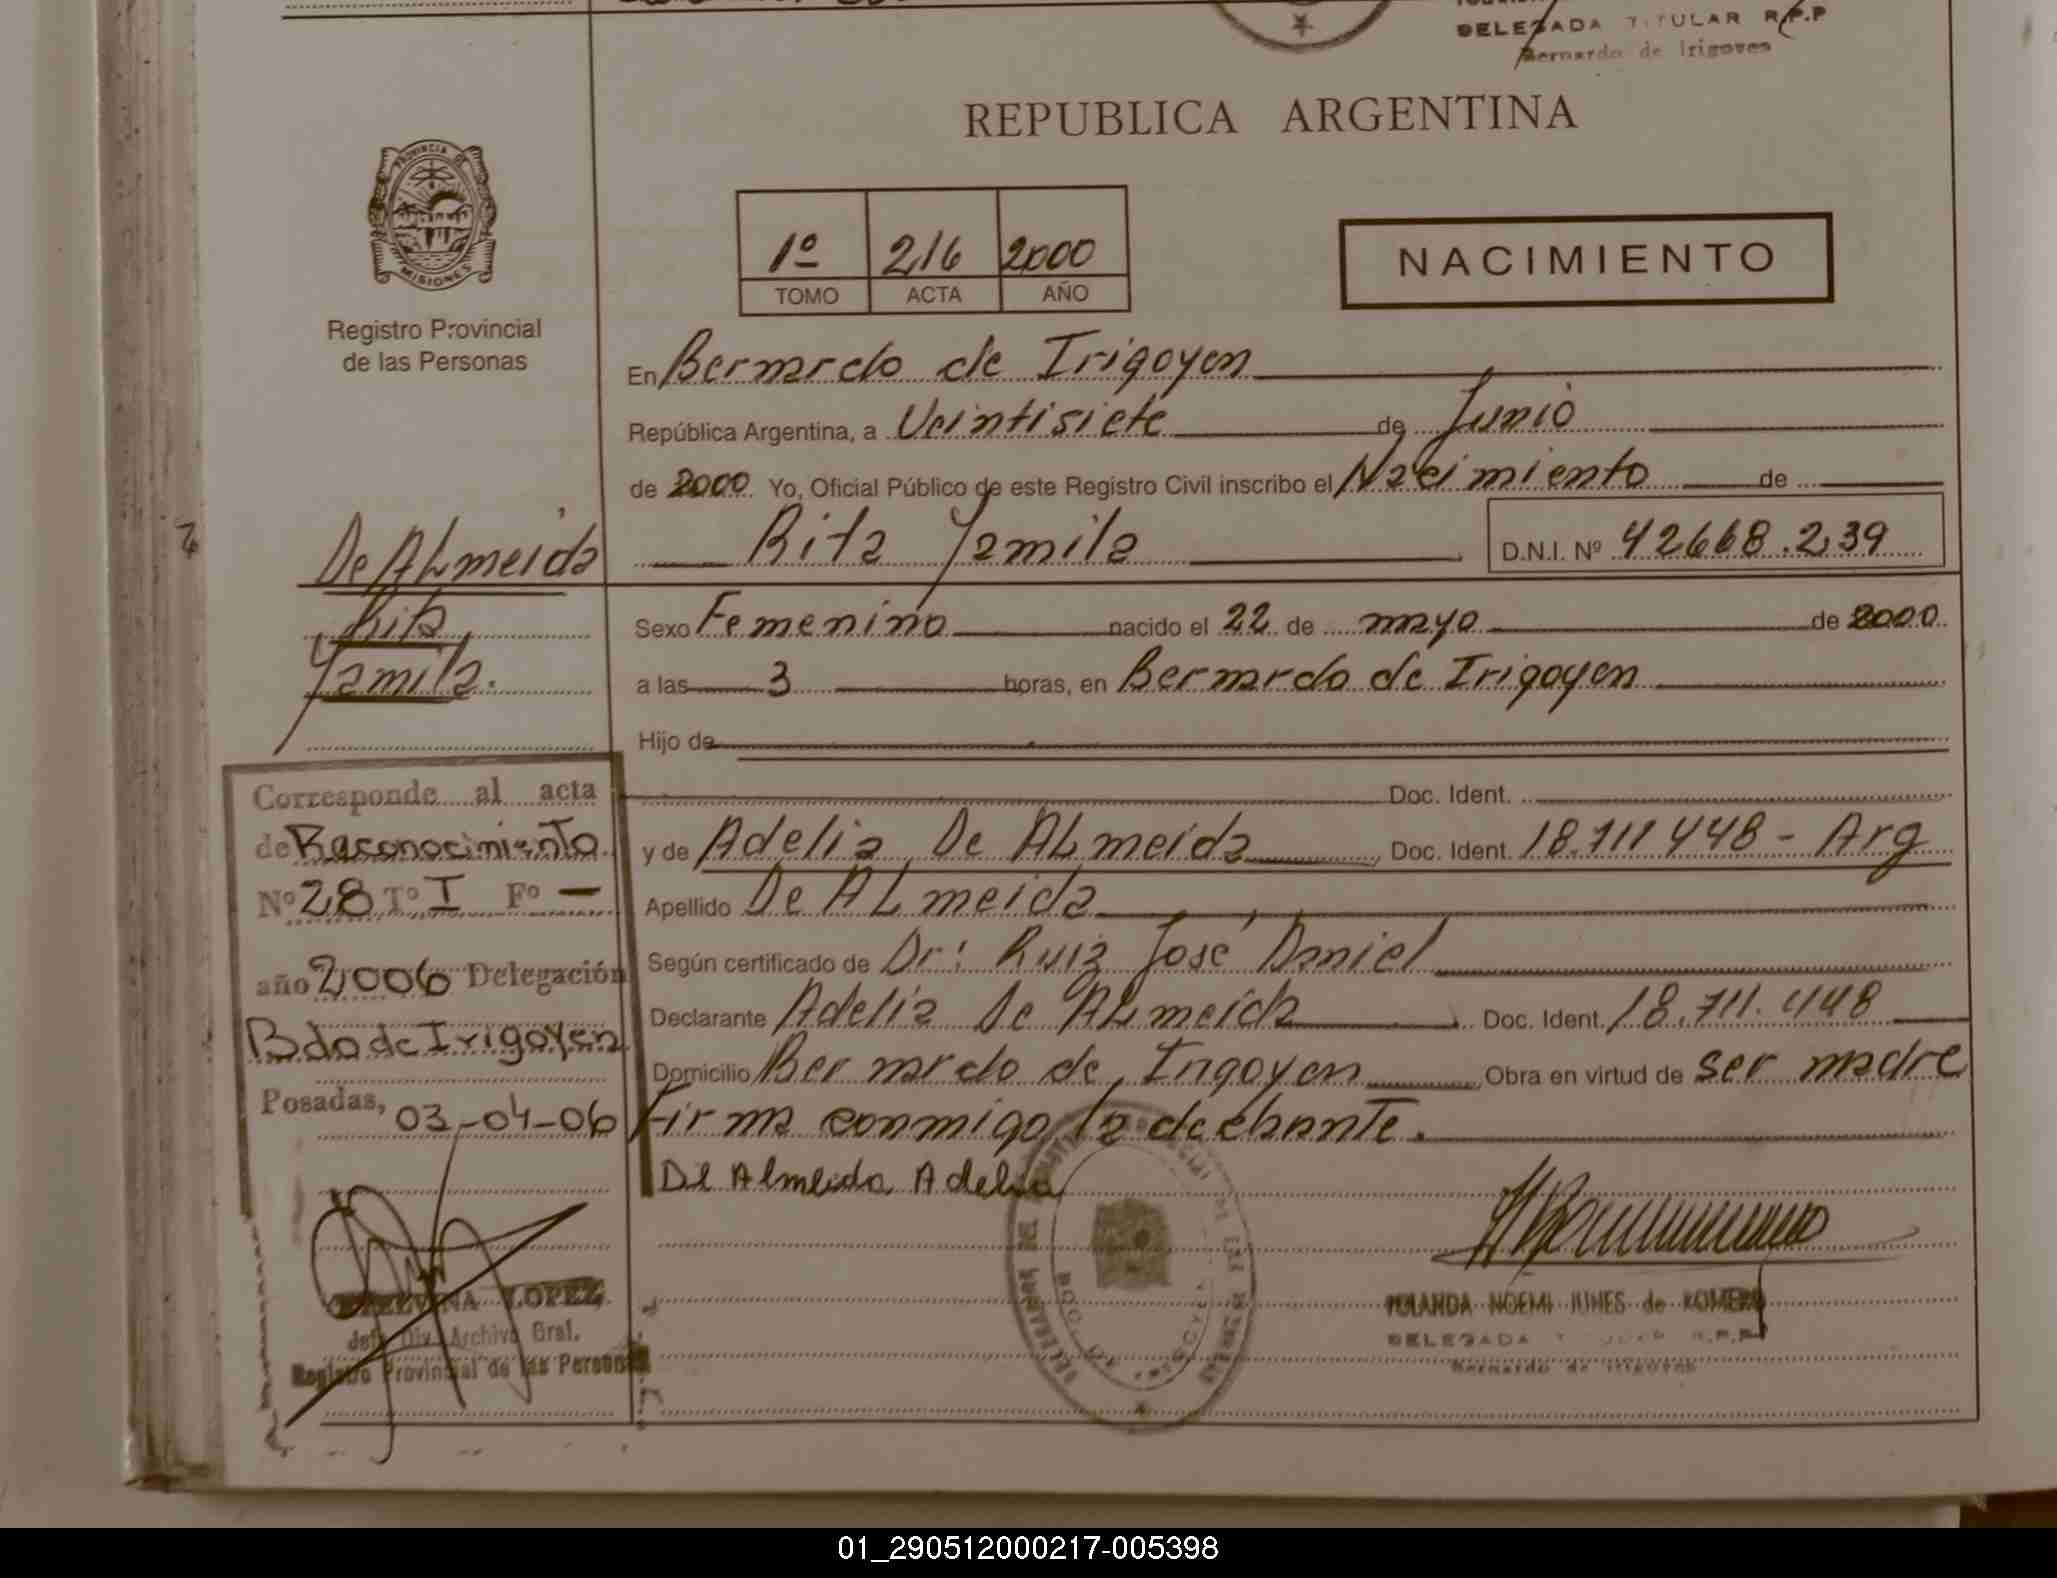 DELEGADA TITULAR R.P.P
Bernardo de Irigoyen
REPUBLICA ARGENTINA
PROVINCIA DE
MISIONES
Registro Provincial
de las Personas
1º 216 2000
TOMO ACTA AÑO
NACIMIENTO
En Bernardo de Irigoyen
República Argentina, a Veintisiete de Junio
de 2000 Yo, Oficial Público de este Registro Civil inscribo el Nacimiento de
Rita Yamila D.N.I. Nº 42668.239
De ALmeida
Rita
Yamila.
Sexo Femenino nacido el 22 de mayo de 2000
a las 3 horas, en Bernardo de Irigoyen
Hijo de
Doc. Ident.
y de Adelia De ALmeida Doc. Ident. 18.711 448 - Arg
Apellido De ALmeida
Según certificado de Dr: Ruiz José Daniel
Declarante Adelia De ALmeida Doc. Ident. 18.711.448
Domicilio Bernardo de Irigoyen Obra en virtud de ser madre
Firma conmigo la declarante.
De Almeida Adelia
Corresponde al acta
de Reconocimiento
Nº 28 Tº I Fº —
año 2006 Delegación
Bdo de Irigoyen
Posadas, 03-04-06
LOPEZ
Jefe Div. Archivo Gral.
Registro Provincial de las Personas
YOLANDA NOEMI JUNES de ROMERO
DELEGADA TITULAR R.P.P
Bernardo de Irigoyen
01_290512000217-005398